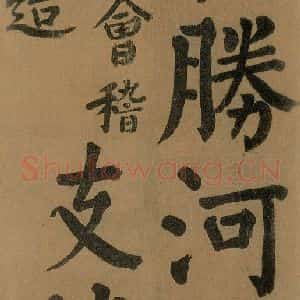 勝河
會稽支
造
Shufawang.CN